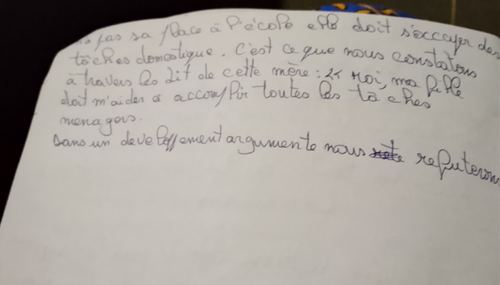 pas sa place à l'école elle doit s'occuper des
tâches domestique. C'est ce que nous constatons
à travers les dit de cette mère : "Moi, ma fille
doit m'aider à accomplir toutes les tâches
menagers.
Dans un developpement argumenté nous refuterons